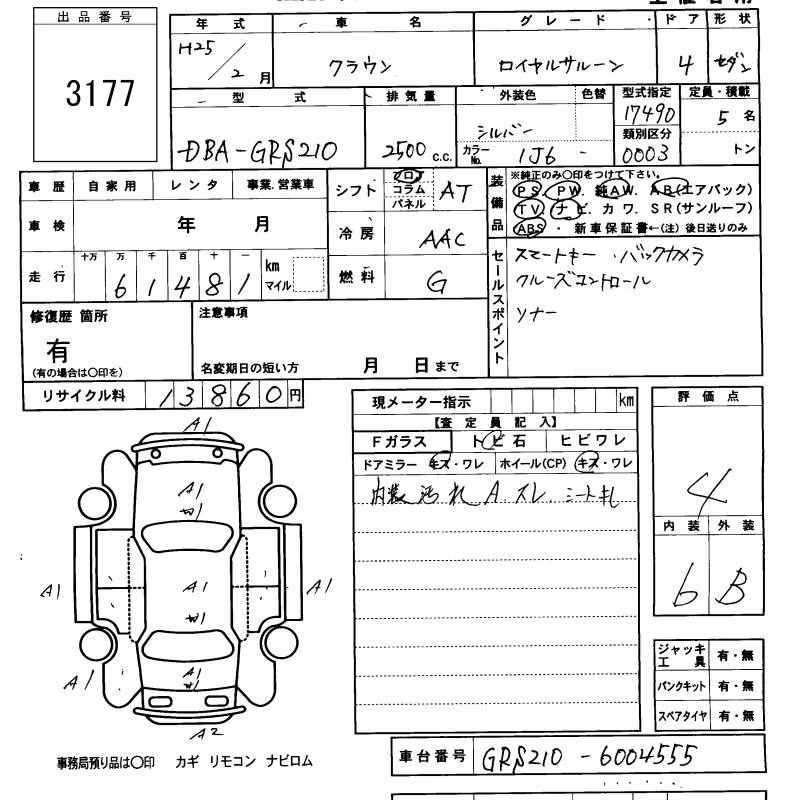 出品番号
3177
年式 車名 グレード ドア 形状
H25/2月 クラウン ロイヤルサルーン 4 セダン
型式 排気量 外装色 色替 型式指定 定員・積載
DBA-GRS210 2500 c.c. シルバー 17490 5名
カラーNo. 1J6 - 類別区分 0003 トン
車歴 自家用 レンタ 事業.営業車
シフト フロ コラム パネル AT
装備品
※純正のみ○印をつけて下さい。
PS. PW. 純AW. AB(エアバック)
TV. ナビ. カワ. SR(サンルーフ)
ABS ・ 新車保証書←(注) 後日送りのみ
車検 年 月
冷房 AAC
走行 十万 万 千 百 十 一
61481 km マイル
燃料 G
セールスポイント
スマートキー ・バックカメラ
クルーズコントロール
ソナー
修復歴 箇所
有
(有の場合は○印を)
注意事項
名変期日の短い方 月 日まで
リサイクル料 13860円
現メーター指示 km
【査定員記入】
Fガラス トビ石 ヒビワレ
ドアミラー キズ・ワレ ホイール(CP) キズ・ワレ
内装汚れ A スレ シートキレ
評価点
4
内装 外装
6 B
A1
A1
A1
A1
A1
A1
A1
A2
ジャッキ工具 有・無
パンクキット 有・無
スペアタイヤ 有・無
事務局預り品は○印 カギ リモコン ナビロム
車台番号 GRS210-6004555